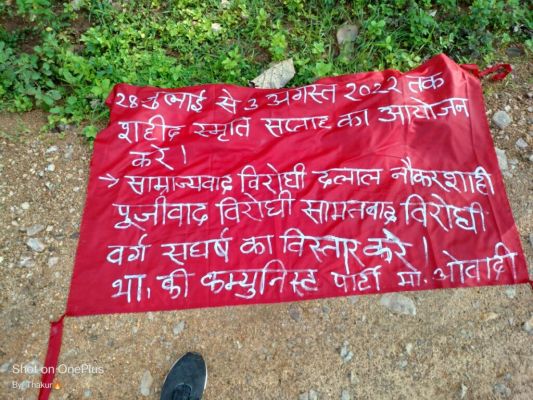 28 जुलाई से 3 अगस्त 2022 तक
शहीद स्मृति सप्ताह का आयोजन
करे।
→ साम्राज्यवाद विरोधी दलाल नौकरशाही
पूजीवाद विरोधी सामतवाद विरोधी
वर्ग सघर्ष का विस्तार करे।
भा. की कम्युनिस्ट पार्टी मा. ओवादी
Shot on OnePlus
By Thakur🔥